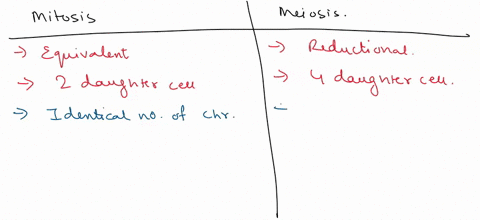 Mitosis Meiosis.
→ Equivalent → Reductional.
→ 2 daughter cell → 4 daughter cell.
→ Identical no. of chr.